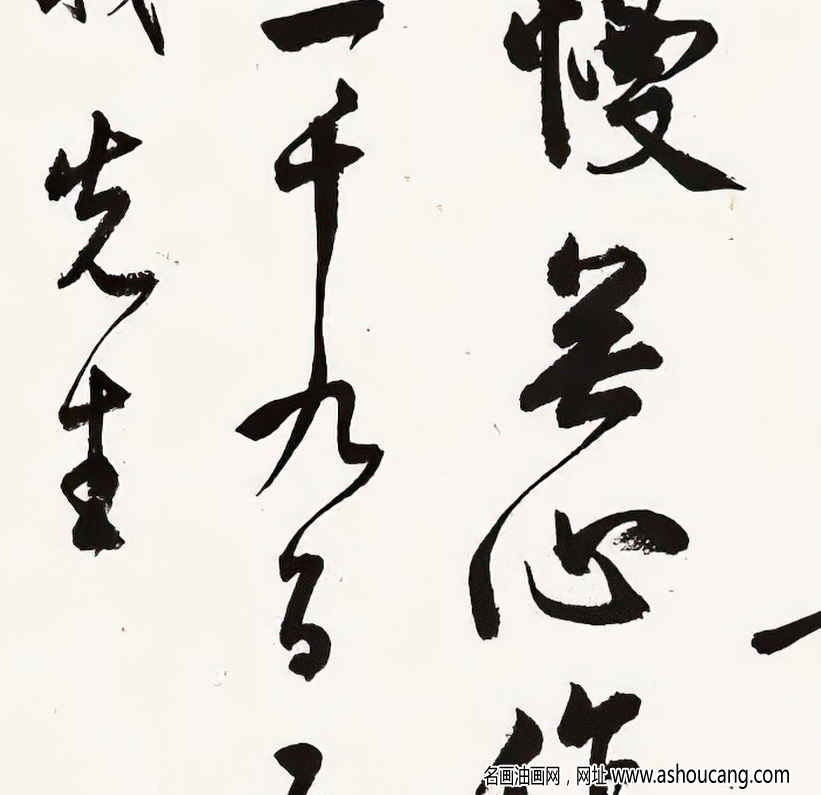 慢無心作
一千九百
先生
名画油画网，网址 www.ashoucang.com